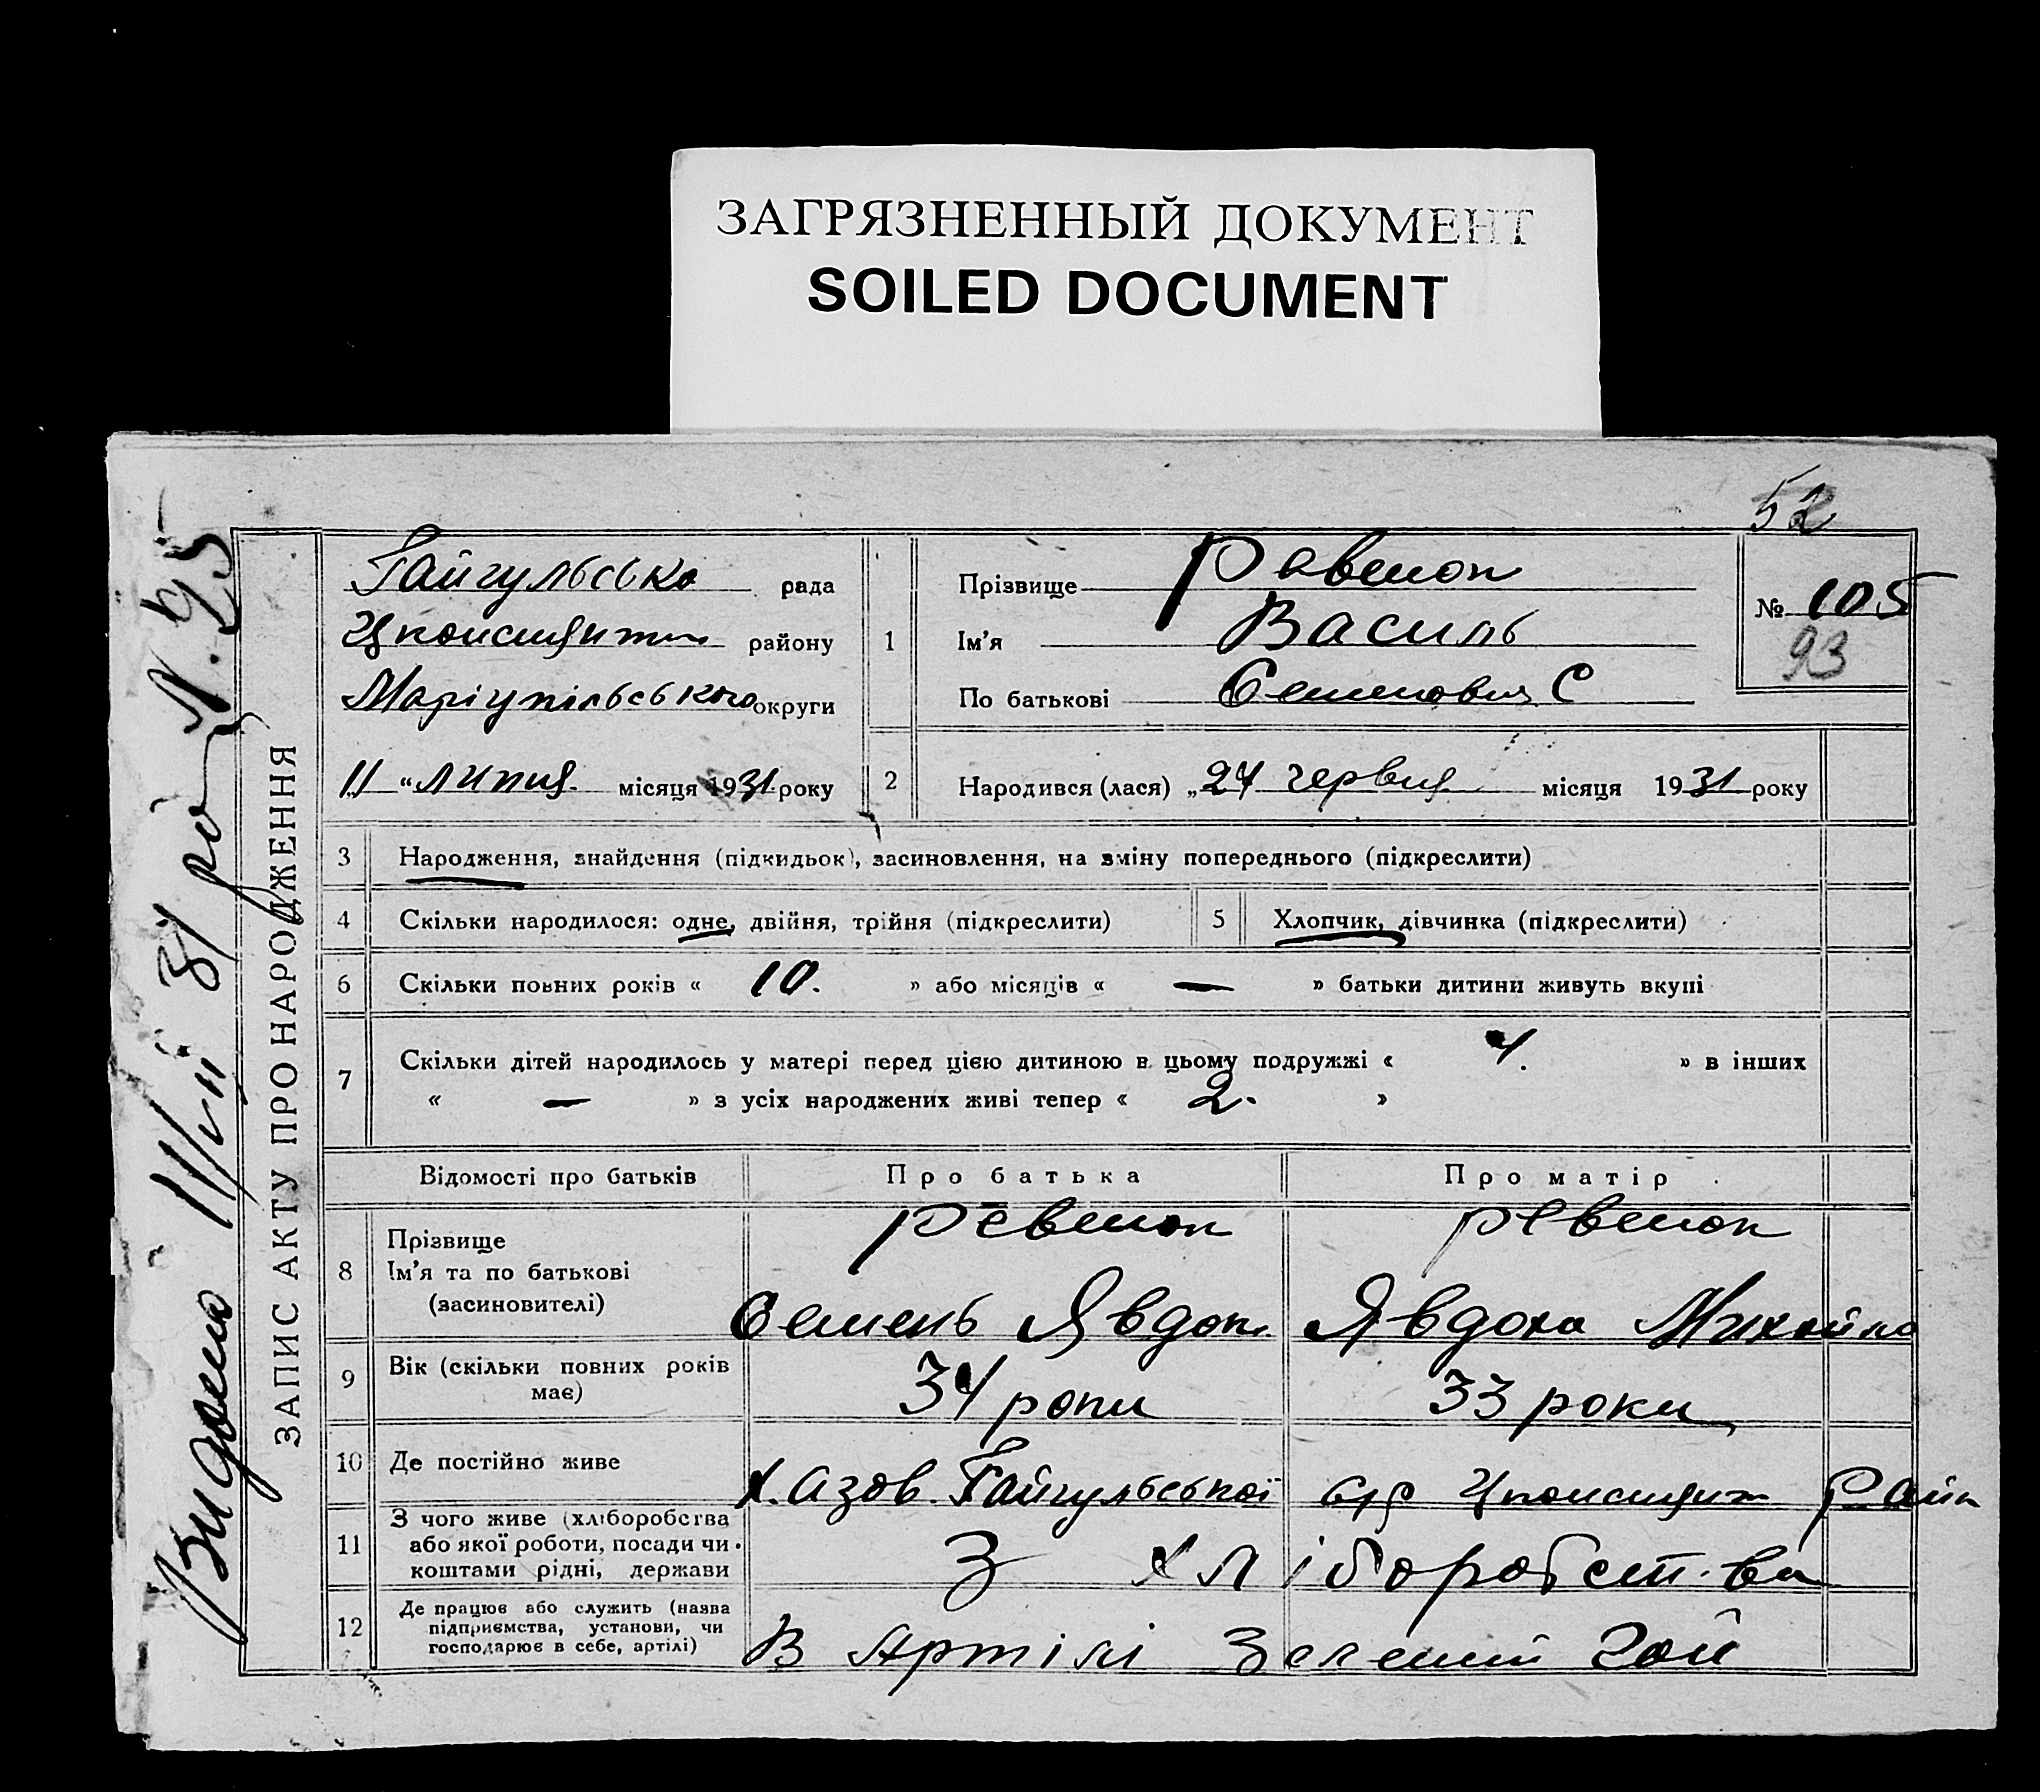 ЗАГРЯЗНЕННЫЙ ДОКУМЕНТ
SOILED DOCUMENT
52
Видано 11/VII 31 ро N. 95
ЗАПИС АКТУ ПРО НАРОДЖЕННЯ
Гайчульсько рада
району
Маріупільського округи
„11 “ липня місяця 1931 року
1 Прізвище Равенок
Ім'я Василь
По батькові Семенович С
№ 105
93
2 Народився (лася) „ 24 червня місяця 1931 року
3 Народження, знайдення (підкидьок), засиновлення, на зміну попереднього (підкреслити)
4 Скільки народилося: одне, двійня, трійня (підкреслити) 5 Хлопчик, дівчинка (підкреслити)
6 Скільки повних років « 10. » або місяців « — » батьки дитини живуть вкупі
7 Скільки дітей народилось у матері перед цією дитиною в цьому подружжі « 4. » в інших
« — » з усіх народжених живі тепер « 2. »
Відомості про батьків Про батька Про матір
8 Прізвище Ревенок Ревенок
Ім'я та по батькові
(засиновителі) Семень Явдок. Явдоха Михайло
9 Вік (скільки повних років має) 34 роки 33 роки
10 Де постійно живе х. Азов. Гайчульської с/р Райн
11 З чого живе (хліборобства
або якої роботи, посади чи
коштами рідні, держави З хліборобст.ва
12 Де працює або служить (назва
підприємства, установи, чи
господарює в себе, артілі) В Артілі Зелений Гай